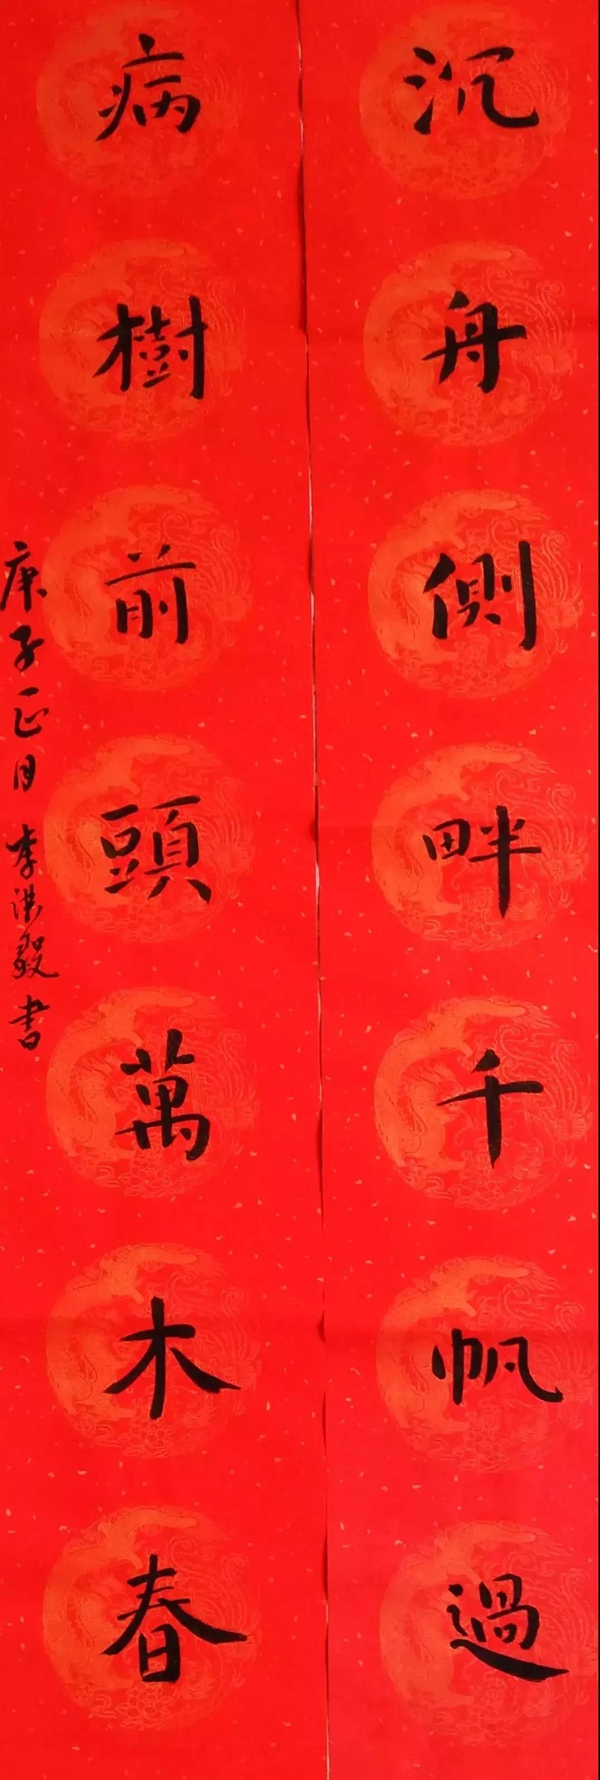 沉舟側畔千帆過
病樹前頭萬木春
庚子正月李洪毅书